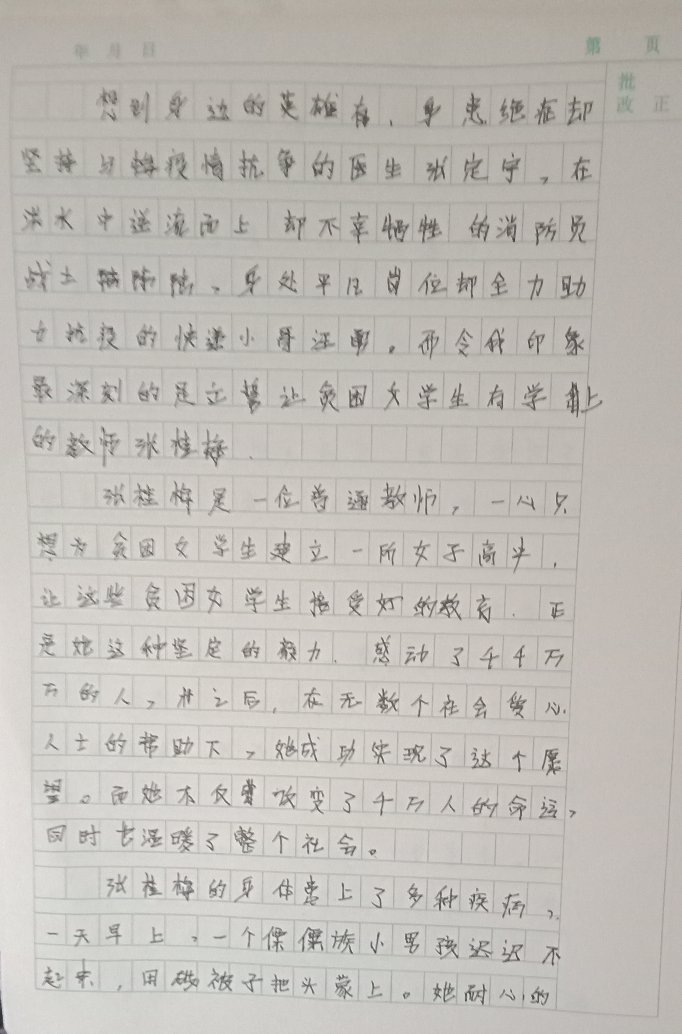 年 月 日
第 页
批改 正
想到身边的英雄有、身患绝症却
坚持与疫情抗争的医生张定宇,在
洪水中逆流而上 却不幸牺牲 的消防员
战士陈陆、身处平凡岗位却全力助
力抗疫的快递小哥汪勇。而令我印象
最深刻的是立誓让贫困女学生有学上
的教师张桂梅.
张桂梅是一位普通教师,一心只
想为贫困女学生建立一所女子高中,
让这些贫困女学生接受好的教育.正
是她这种坚定的毅力、感动了千千万
万的人,之后,在无数个社会爱心
人士的帮助下,她成功实现了这个愿
望。而她不仅改变了千万人的命运,
同时也温暖了整个社会。
张桂梅的身体患上了多种疾病,
一天早上,一个傈僳族小男孩迟迟不
起来,用被子把头蒙上。她耐心的